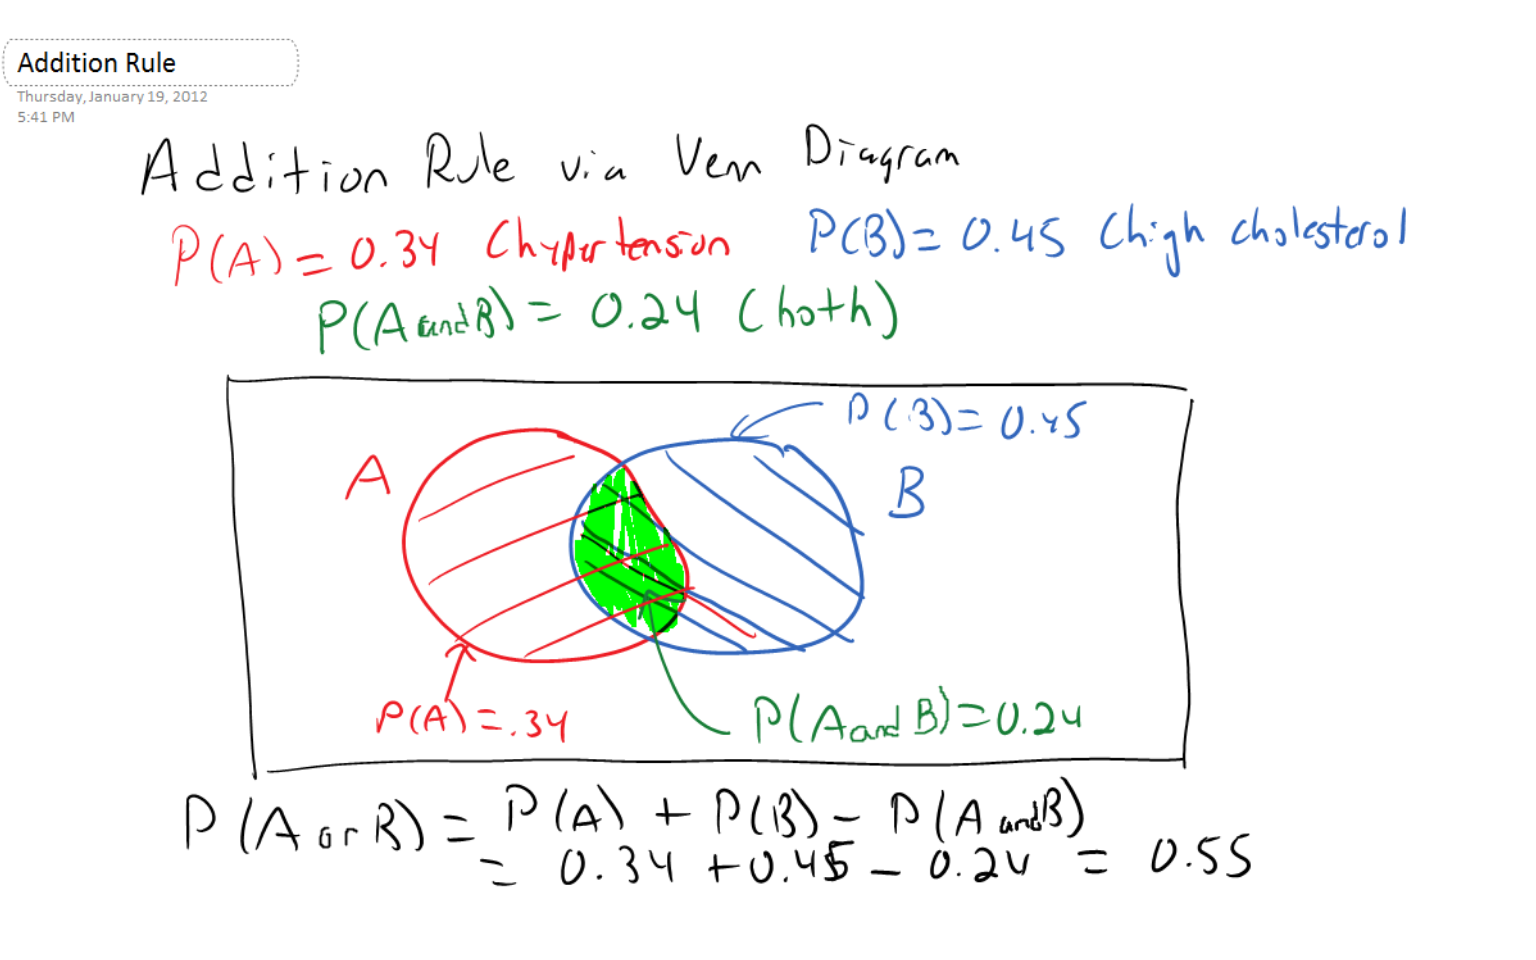 Addition Rule
Thursday, January 19, 2012
5:41 PM
Addition Rule via Venn Diagram
P(A) = 0.34 (hypertension P(B) = 0.45 (high cholesterol
P(A and B) = 0.24 (both)
P(B) = 0.45
A
B
P(A) = .34
P(A and B) = 0.24
P(A or B) = P(A) + P(B) - P(A and B)
= 0.34 + 0.45 - 0.24 = 0.55